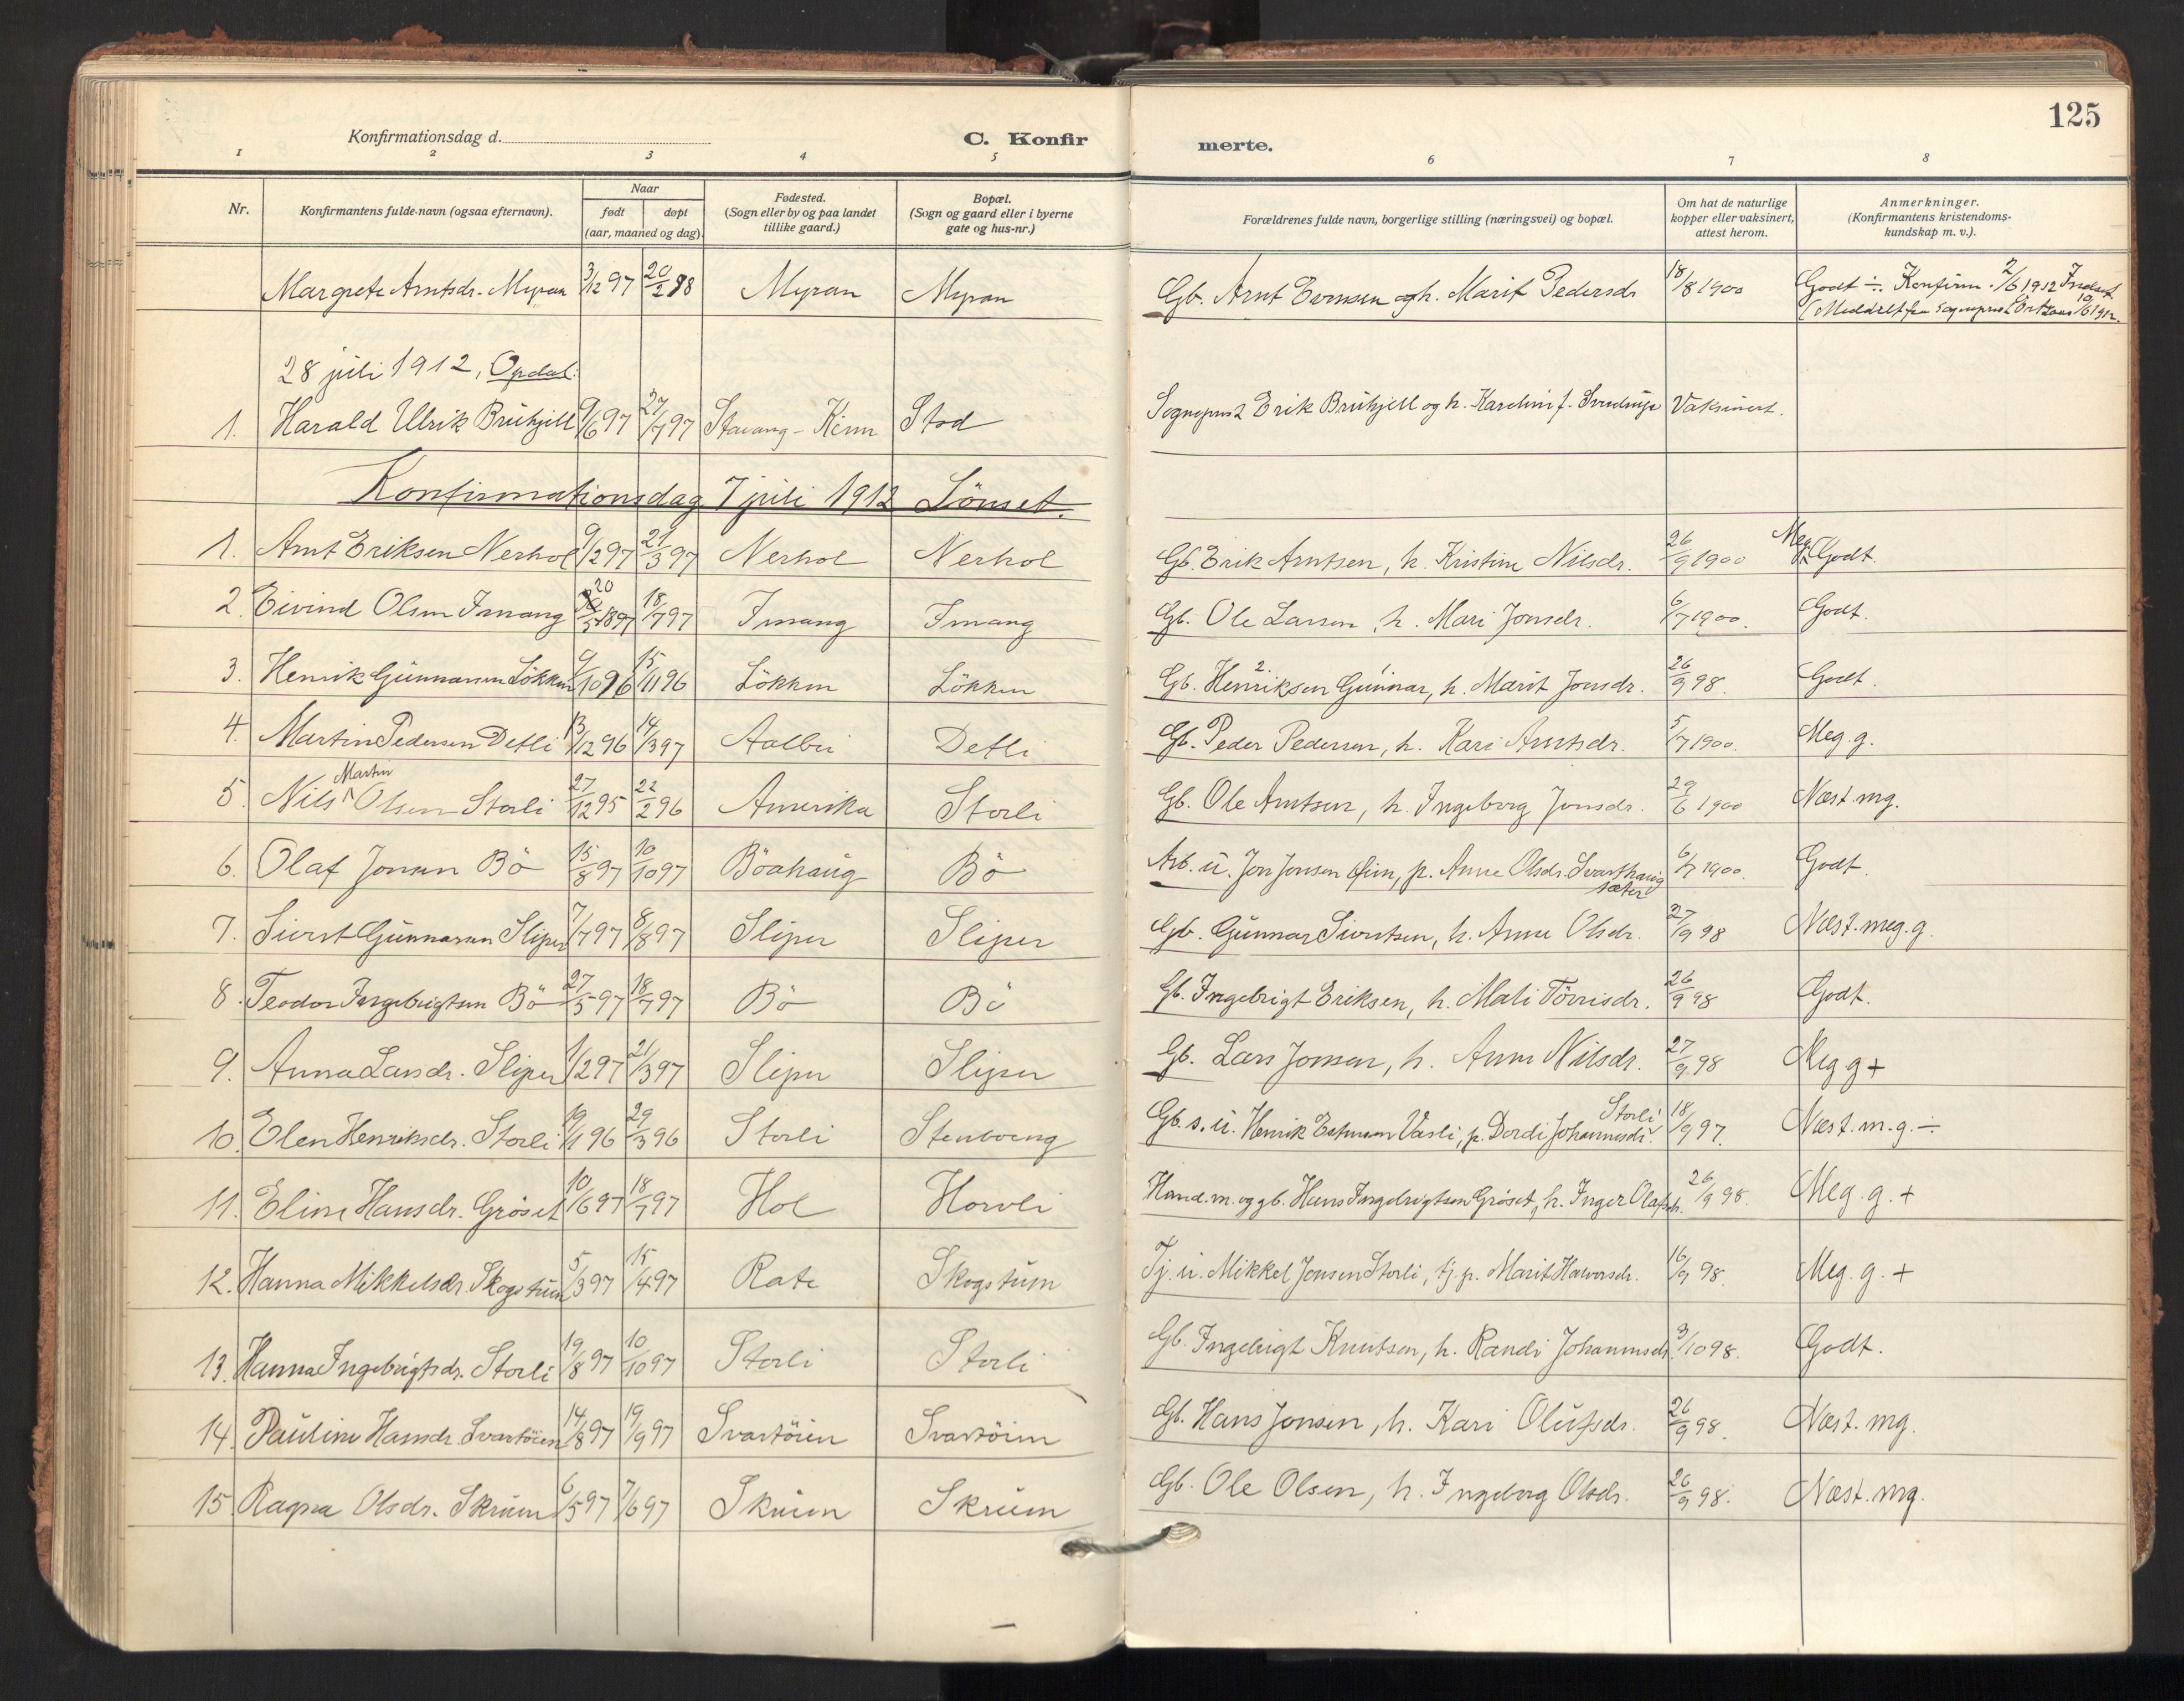 125
Konfirmationsdag d. C. Konfirmerte.
1 2 3 4 5 6 7 8
Nr. Konfirmantens fulde navn (ogsaa efternavn). Naar født døpt (aar, maaned og dag). Fødested. (Sogn eller by og paa landet tillike gaard.) Bopæl. (Sogn og gaard eller i byerne gate og hus-nr.) Forældrenes fulde navn, borgerlige stilling (næringsvei) og bopæl. Om hat de naturlige kopper eller vaksinert, attest herom. Anmerkninger. (Konfirmantens kristendoms-kundskap m. v.).
Margrete Arntsdr. Myran 3/12 97 20/2 98 Myran Myran Gb. Arnt Evensen og h. Marit Pedersdr 18/8 1900 Godt ÷. Konfirm. 2/6 1912 Indset
(Meddelt fra Sogneprest 10/6 1912.
28 juli 1912, Opdal:
1. Harald Ulrik Bruhjell 9/6 97 27/7 97 Stavang - Kinn Stod Sogneprest Erik Bruhjell og h. Karelini f. Vaksinert.
Konfirmationsdag 7 juli 1912 Lönset.
1. Arnt Eriksen Nerhol 9/2 97 21/3 97 Nerhol Nerhol Gb. Erik Arntsen, h. Kristine Nilsdr. 26/9 1900 Meg Godt.
2. Eivind Olsen Irnang 20/5 1897 18/7 97 Irnang Irnang Gb. Ole Larsen, h. Mari Jonsdr. 6/7 1900. Godt.
3. Henrik Gunnarsen Lökken 9/10 96 15/11 96 Lökken Lökken Gb. Henriksen 2. Gunnar 1, h. Marit Jonsdr. 26/9 98. Godt.
4. Martin Pedersen Detli 13/12 96 14/3 97 Aalbu Detli Gb. Peder Pedersen, h. Kari Arntsdr. 5/7 1900. Meg. g.
5. Nils Martin Olsen Storli 27/12 95 22/2 96 Amerika Storli Gb. Ole Arntsen, h. Ingeborg Jonsdr. 29/6 1900 Næst. mg.
6. Olaf Jonsen Bö 15/8 97 10/10 97 Böahaug Bö Arb. u. Jon Jonsen, p. Anne Olsdr. Svarthaug sæter 6/7 1900. Godt.
7. Sivert Gunnarsen Sliper 7/7 97 8/8 97 Sliper Sliper Gb. Gunnar Sivertsen, h. Anne Olsdr. 27/9 98 Næst. meg. g.
8. Teodor Ingebrigtsen Bö 27/5 97 18/7 97 Bö Bö Gb. Ingebrigt Eriksen, h. Mali Törrisdr. 26/9 98 Godt.
9. Anna Larsdr. Sliper 1/2 97 21/3 97 Sliper Sliper Gb. Lars Jonsen, h. Anne Nilsdr. 27/9 98 Meg. g +
10. Elen Henriksdr. Storli 19/1 96 29/3 96 Storli Stenboeng Gb. s. u. Henrik Estensen Vasli, p. Dordi Johannesdr. Storli 18/9 97. Næst. m. g. ÷
11. Eline Hansdr. Gröset 10/6 97 18/7 97 Hol Horvli Hand. m. og gb. Hans Ingebrigtsen Gröset, h. Inger Olafsdr. 26/9 98. Meg. g. +
12. Hanna Mikkelsdr. Skogstum 5/3 97 15/4 97 Rate Skogstum Tj. u. Mikkel Jonsen Storli, tj. p. Marit Halvorsdr. 16/9 98. Meg. g. +
13. Hanna Ingebrigtsdr. Storli 19/8 97 10/10 97 Storli Storli Gb. Ingebrigt Knutsen, h. Randi Johannesdr. 3/10 98. Godt.
14. Pauline Hansdr. Svartöien 14/8 97 19/9 97 Svartöien Svartöien Gb. Hans Jonsen, h. Kari Olufsdr. 26/9 98. Næst. mg.
15. Ragna Olsdr. Skruen 6/5 97 7/6 97 Skruen Skruen Gb. Ole Olsen, h. Ingeborg Olsdr. 26/9 98. Næst. mg.